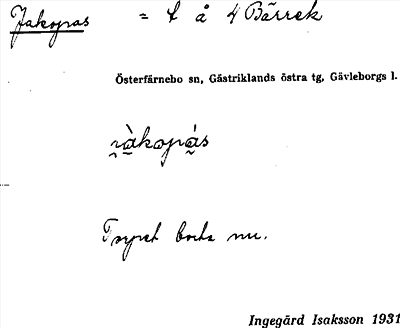 Jakopas = t å 4 Bärrek
Österfärnebo sn, Gästriklands östra tg, Gävleborgs l.
Torpet borta nu.
Ingegärd Isaksson 1931